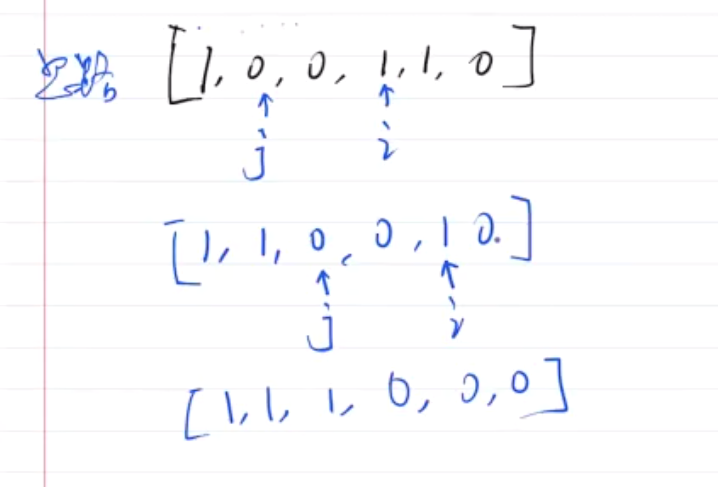 [1, 0, 0, 1, 1, 0]
↑ ↑
j i
[1, 1, 0, 0, 1 0.]
↑ ↑
j i
[1, 1, 1, 0, 0, 0]